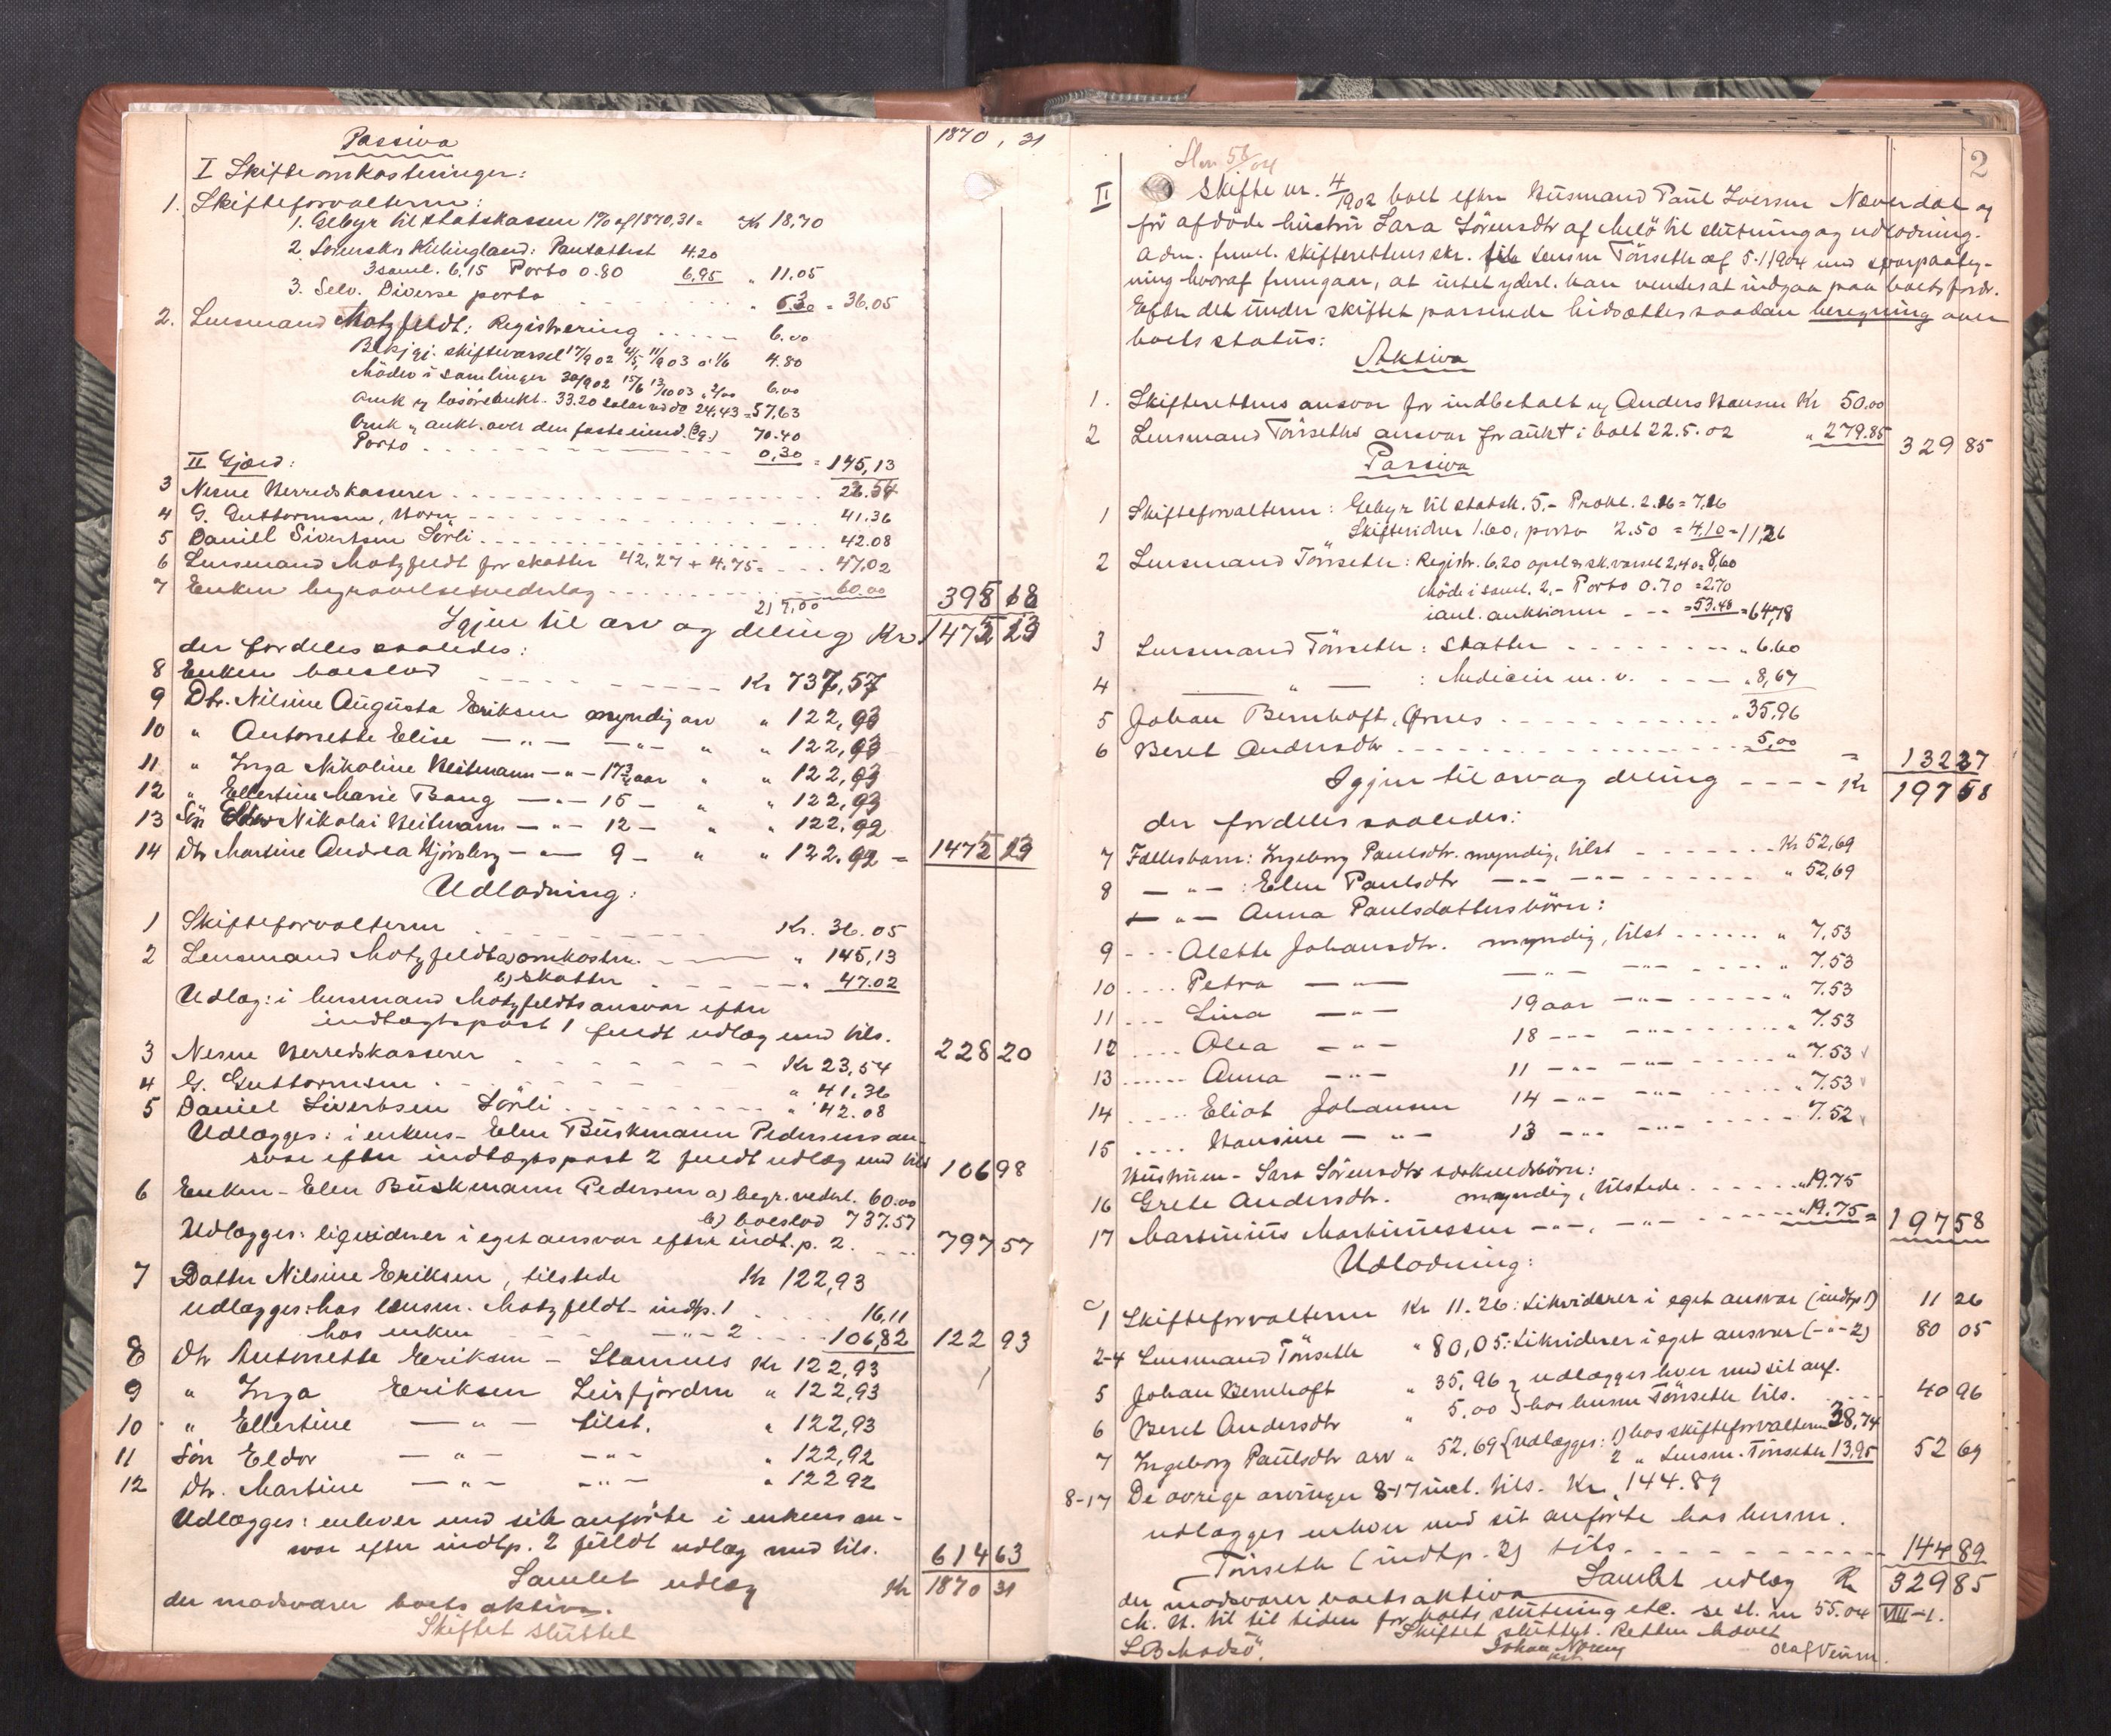 Passiva
1870,31
I Skifteomkostninger:
1. Skifteforvalteren:
1. Gebyr til statskassen 1% af 1870,31 = Kr 18,70
2. Sorenskr. : Pantattest 4.20
3 saml. 6.15 Porto 0.80 6.95 " 11.05
3. Selv. Diverse porto " 6.30 = 36.05
2. Lensmand Motzfeldt: Registrering 6.00
Bekjgj. skiftevarsel 17/9 02 4/5 11/9 03 à 1/6 4.80
Möder i samlinger 30/9 02 15/6 13/10 03 à 2/00 6.00
Auk lösöreaukt. 33.20 24,43 = 57,63
aukt. over den faste eiend. 70.40
Porto 0,30 = 145,13
II Gjæld:
3 Nesne Herredskasserer 23.54
4 G. Guttormsen, 41.36
5 Daniel Sivertsen Sörli 42.08
6 Lensmand Motzfeldt for skatter 42,27 + 4.75 = 47,02
7 Enken begravelsesvederlag 60.00 395 18
Igjen til arv og deling Kr 1475 13
der fordeles saaledes:
8 Enken boeslod Kr 737,57
9 Dtr. Nilsine Augusta Eriksen myndig arv " 122,93
10 " Antonette Elise — " — — " — " " 122,93
11 " Inga Nikoline Heitmann — " — 17 3/4 aar " " 122,93
12 " Ellertine Marie Bang — " — 15 — " " 122,93
13 Sön Eldor Nikolai Heitmann — " — 12 — " " 122,92
14 Dtr Martine Andrea Hjörsberg — " — 9 — " " 122.92 = 1475 13
Udlodning:
1 Skifteforvalteren Kr. 36.05
2 Lensmand Motzfeldt a) omkostn. " 145,13
b) skatter " 47.02
Udlæg: i lensmand Motzfeldts ansvar efter
indtægtspost 1 fuldt udlæg med tils. 228 20
3 Nesne Herredskasserer Kr 23,54
4 G. Guttormsen " 41.36
5 Daniel Sivertsen Sörli " 42.08
Udlægges: i enkens – Elen Buskmann Pedersens an-
svar efter indtægtspost 2 fuldt udlæg med tils 106 98
6 Enken – Elen Buskmann Pedersen a) begr. vederl. 60.00
b) boeslod 737.57
Udlægges: liqviderer i eget ansvar efter indt. p. 2. 797 57
7 Datter Nilsine Eriksen, tilstede Kr 122,93
udlægges: hos lensm. Motzfeldt – indtp. 1 16,11
hos enken — " — 2 106,82 122 93
8 Dtr Antonette Eriksen – Stamnes Kr 122,93
9 " Inga Eriksen Leirfjorden " 122,93
10 " Ellertine — " — tilst. " 122,93
11 Sön Eldor — " — — " — " 122,92
12 Dtr. Martine — " — — " — " 122 92
Udlægges: enhver med sit anförte i enkens an-
svar efter indtp. 2 fuldt udlæg med tils. 614 63
Samlet udlæg Kr 1870 31
der modsvarer boets aktiva.
Skiftet sluttet
2
II Skifte nr. 4/1902 boet efter Husmand Paul Iversen Næverdal og
för afdöde hustru Sara Sörensdtr af Melö til slutning og udlodning.
Adm. freml. skifterettens skr. til lensm Tönseth af 5.1.1904 med svarpaateg-
ning hvoraf fremgaar, at intet yderl. kan ventes at indgaa paa boets fordr.
Efter det under skiftet passerede hidsættes saadan beregning over
boets status:
Aktiva
1. Skifterettens ansvar for indbetalt af Anders Hansen Kr 50.00
2 Lensmand Tönseths ansvar for aukt i boet 22.5.02 " 279.85 329 85
Passiva
1 Skifteforvalteren: Gebyr til statsk. 5.– Prokl. 2.16 = 7,16
Skifteridser 1.60, porto 2.50 = 4,10 = 11,26
2 Lensmand Tönseth: Registr. 6.20 opsl. sk.varsel 2,40 = 8,60
Möde i saml. 2,– Porto 0.70 = 2.70
auktionen = 53.48 = 64,78
3 Lensmand Tönseth: Skatter " 6.60
4 — " — : Medicin m. v. " 8,67
5 Johan Bernhoft, Ørnes " 35,96
6 Beret Andersdtr 5,00 = 132 27
Igjen til arv og deling Kr 197 58
der fordeles saaledes:
7 Fællesbarn: Ingeborg Paulsdtr. myndig, tilst Kr 52,69
8 — " — : Elen Paulsdtr — " — — " — " 52,69
— " — Anna Paulsdatters börn:
9 Alette Johansdtr. myndig, tilst " 7,53
10 Petra — " — — " — — " — " 7.53
11 Lina — " — 19 aar — " — " 7.53
12 Alea — " — 18 — " — " 7.53
13 Anna — " — 11 — " — — " — " 7.53
14 Eliot Johansen 14 — " — — " — " 7.53
15 Hansine — " — 13 — " — — " — 7.52
Hustruen – Sara Sörensdtrs særkuldsbörn:
16 Grete Andersdtr. myndig, tilstede " 19.75
17 Martinius Martinussen — " — — " — " 19.75 = 197 58
Udlodning:
1 Skifteforvalteren Kr 11.26: Likviderer i eget ansvar (indtp 1) 11 26
2-4 Lensmand Tönseth " 80,05: Likviderer i eget ansvar (— " — 2) 80 05
5 Johan Bernhoft " 35,96 } udlægges hver med sit anf.
6 Beret Andersdtr " 5,00 } hos lensm Tönseth tils. 40 96
7 Ingeborg Paulsdtr arv " 52,69 { Udlægges: 1) hos skifteforvalteren 38,74
2 " Lensm. Tönseth 13,95 52 69
8-17 De övrige arvinger 8-17 incl. tils. Kr 144.89
udlægges enhver med sit anförte hos lensm.
Tönseth (indtp. 2) tils. 144 89
Samlet udlæg Kr 329 85
der modsvarer boets aktiva
til tiden for boets slutning etc. se sl. nr 55.04 VIII–1.
Skiftet sluttet. Retten hævet
Olaf